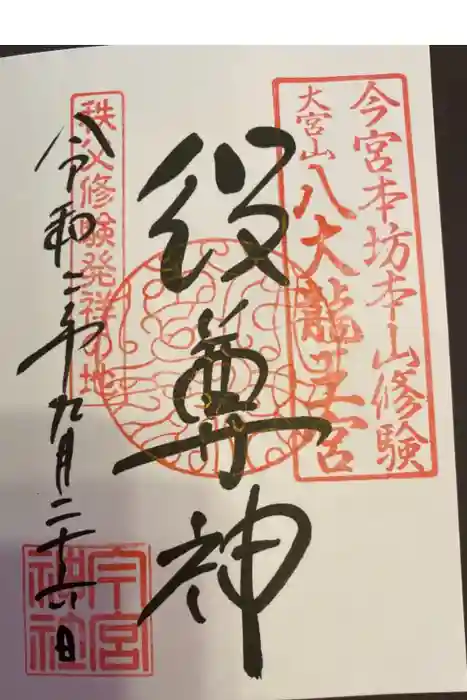 今宮本坊本山修験
大宮山八大龍王宮
役尊神
秩父修験発祥の地
令和二年九月二十六日
今宮神社